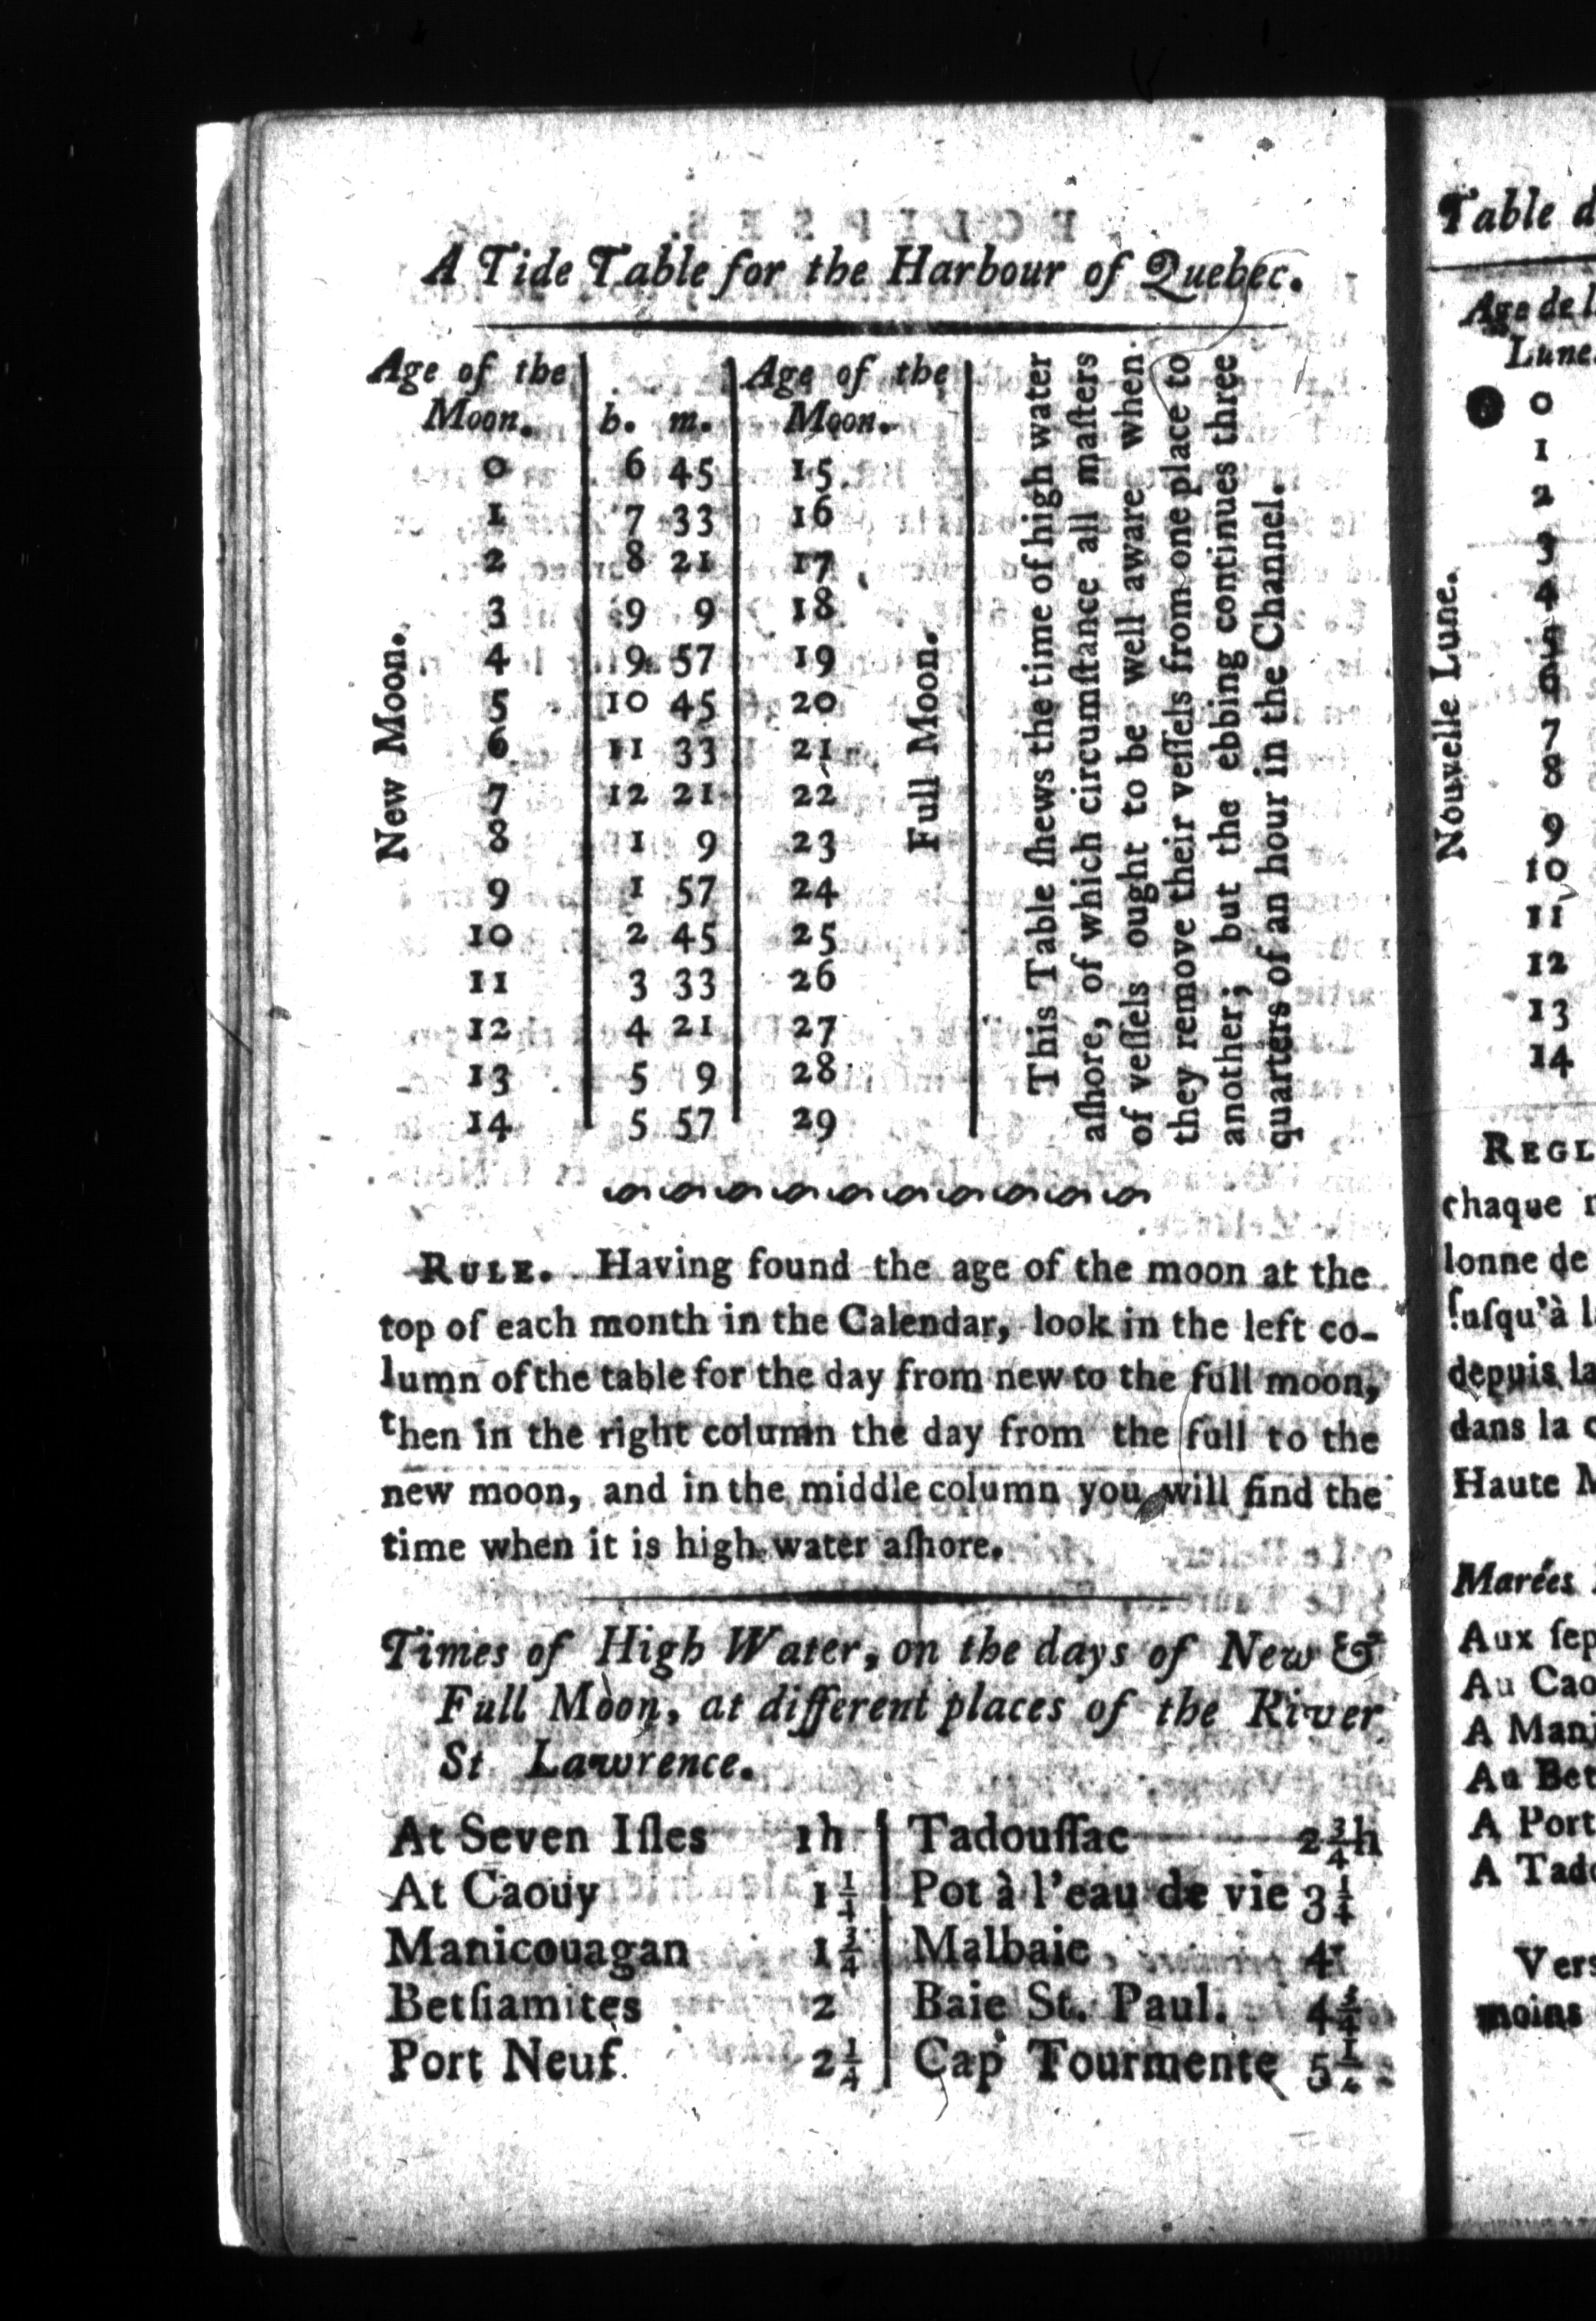 A Tide Table for the Harbour of Quebec.
Age of the Moon. | h. m. | Age of the Moon.
New Moon.
0 | 6 45 | 15
1 | 7 33 | 16
2 | 8 21 | 17
3 | 9 9 | 18
4 | 9 57 | 19
5 | 10 45 | 20
6 | 11 33 | 21
7 | 12 21 | 22
8 | 1 9 | 23
9 | 1 57 | 24
10 | 2 45 | 25
11 | 3 33 | 26
12 | 4 21 | 27
13 | 5 9 | 28
14 | 5 57 | 29
Full Moon.
This Table ſhews the time of high water
aſhore, of which circumſtance all maſters
of veſſels ought to be well aware when
they remove their veſſels from one place to
another; but the ebbing continues three
quarters of an hour in the Channel.
RULE. Having found the age of the moon at the
top of each month in the Calendar, look in the left co-
lumn of the table for the day from new to the full moon,
then in the right column the day from the full to the
new moon, and in the middle column you will find the
time when it is high water aſhore.
Times of High Water, on the days of New &
Full Moon, at different places of the River
St Lawrence.
At Seven Iſles 1h | Tadouſſac 2¾h
At Caouy 1¼ | Pot à l'eau de vie 3¼
Manicouagan 1¾ | Malbaie 4
Betſiamites 2 | Baie St. Paul. 4
Port Neuf 2¼ | Cap Tourmente 5
Table d
Age de l
Lune.
Nouvelle Lune.
0
1
2
3
4
5
6
7
8
9
10
11
12
13
14
REGL
chaque
lonne de
juſqu'à l
depuis la
dans la c
Haute M
Marées
Aux ſep
Au Cao
A Man
Au Bet
A Port
A Tado
Vers
moins